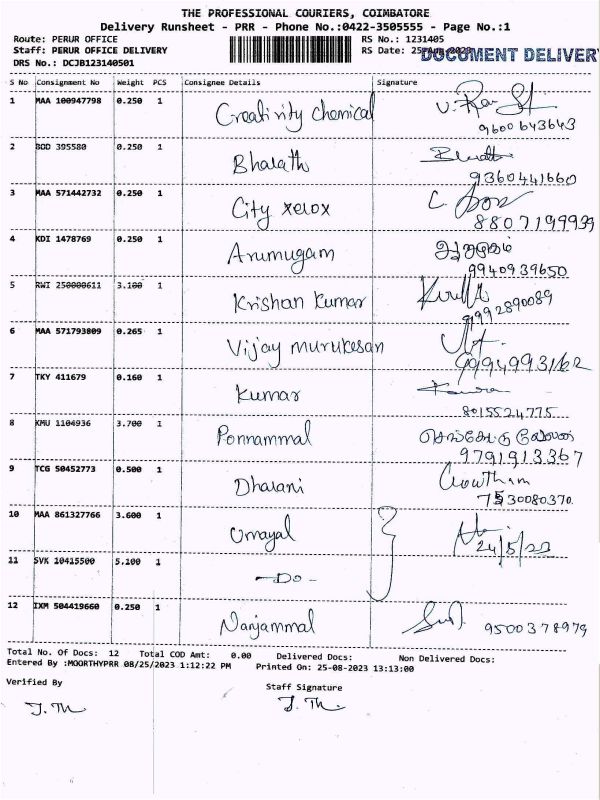 THE PROFESSIONAL COURIERS, COIMBATORE
Delivery Runsheet - PRR - Phone No.:0422-3505555 - Page No.:1
Route: PERUR OFFICE RS No.: 1231405
Staff: PERUR OFFICE DELIVERY RS Date: 25-Aug-2023
DOCUMENT DELIVERY
DRS No.: DCJB123140501
S No Consignment No Weight PCS Consignee Details Signature
1 MAA 100947798 0.250 1 Creativity chemical
9600643643
2 BOD 395580 0.250 1 Bharath
9360441660
3 MAA 571442732 0.250 1 City xerox
8807199939
4 KDI 1478769 0.250 1 Arumugam
9940939650
5 RWI 250000611 3.100 1 Krishan Kumar
9992890089
6 MAA 571793809 0.265 1 Vijay murukesan
7 TKY 411679 0.160 1 Kumar
8015524775
8 KMU 1104936 3.700 1 Ponnammal
9791913367
9 TCG 50452773 0.500 1 Dharani Gowtham
7530080370
10 MAA 861327766 3.600 1 Umayal
24/5/23
11 SVK 10415500 5.100 1 - Do -
12 IXM 504419660 0.250 1 Nanjammal 9500378979
Total No. Of Docs: 12 Total COD Amt: 0.00 Delivered Docs: Non Delivered Docs:
Entered By :MOORTHYPRR 08/25/2023 1:12:22 PM Printed On: 25-08-2023 13:13:00
Verified By Staff Signature